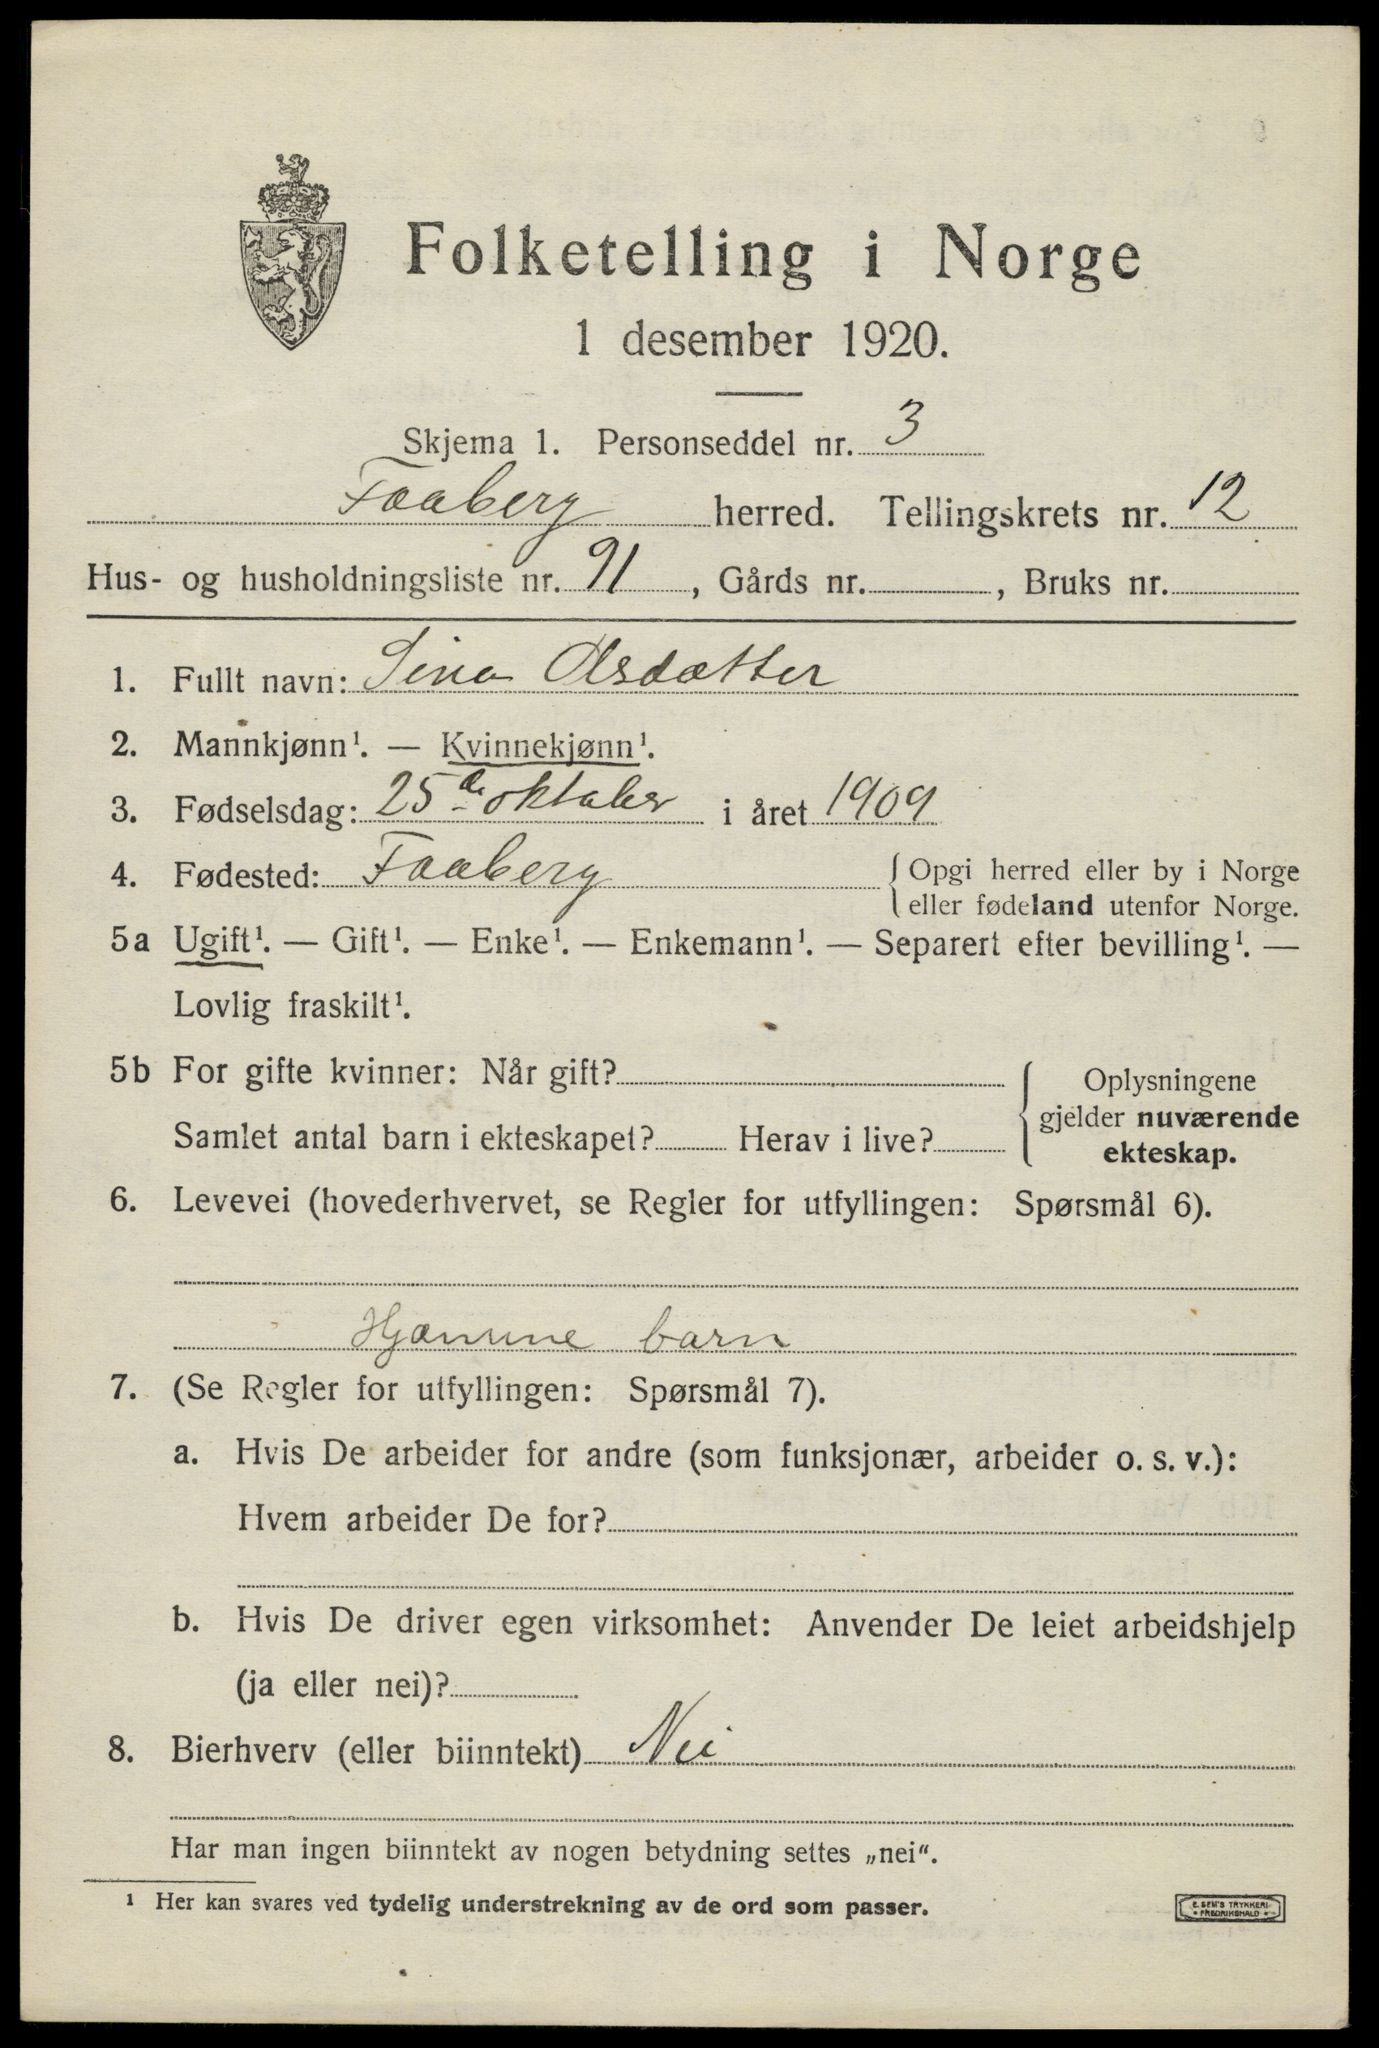 Folketelling i Norge
1 desember 1920.
Skjema 1. Personseddel nr. 3
Faaberg herred. Tellingskrets nr. 12
Hus- og husholdningsliste nr. 91, Gårds nr. , Bruks nr.
1. Fullt navn: Sina Olsdatter
2. Mannkjønn¹. — Kvinnekjønn¹.
3. Fødselsdag: 25de oktober i året 1909
4. Fødested: Faaberg { Opgi herred eller by i Norge
eller fødeland utenfor Norge.
5a Ugift¹. — Gift¹. — Enke¹. — Enkemann¹. — Separert efter bevilling¹. —
Lovlig fraskilt¹.
5b For gifte kvinner: Når gift?
Samlet antal barn i ekteskapet? Herav i live?
Oplysningene
gjelder nuværende
ekteskap.
6. Levevei (hovederhvervet, se Regler for utfyllingen: Spørsmål 6).
Hjæmme barn
7. (Se Regler for utfyllingen: Spørsmål 7).
a. Hvis De arbeider for andre (som funksjonær, arbeider o. s. v.):
Hvem arbeider De for?
b. Hvis De driver egen virksomhet: Anvender De leiet arbeidshjelp
(ja eller nei)?
8. Bierhverv (eller biinntekt) Nei
Har man ingen biinntekt av nogen betydning settes „nei“.
¹ Her kan svares ved tydelig understrekning av de ord som passer.
E. SEM'S TRYKKERI
FREDRIKSHALD